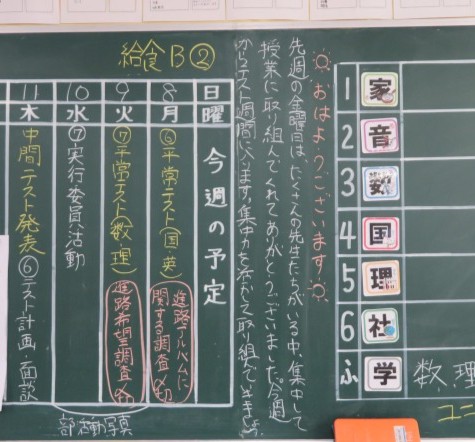 給食B②
1 家
2 音
3 数
4 国
5 理
6 社
ふ 学 数、理
☼おはようございます☼
先週の金曜日は、たくさんの先生たちがいる中、集中して
授業に取り組んでくれてありがとうございました。今週
からテスト週間に入ります。集中力を活かして取り組んでいきましょう。
日 曜 今週の予定
8 月 ⑥平常テスト(国・英)
進路アルバムに
関する調査〆切
9 火 ⑦平常テスト(数・理)
進路希望調査〆切
10 水 ⑦実行委員活動
11 木 中間テスト発表 ⑥テスト計画・面談
部活動写真